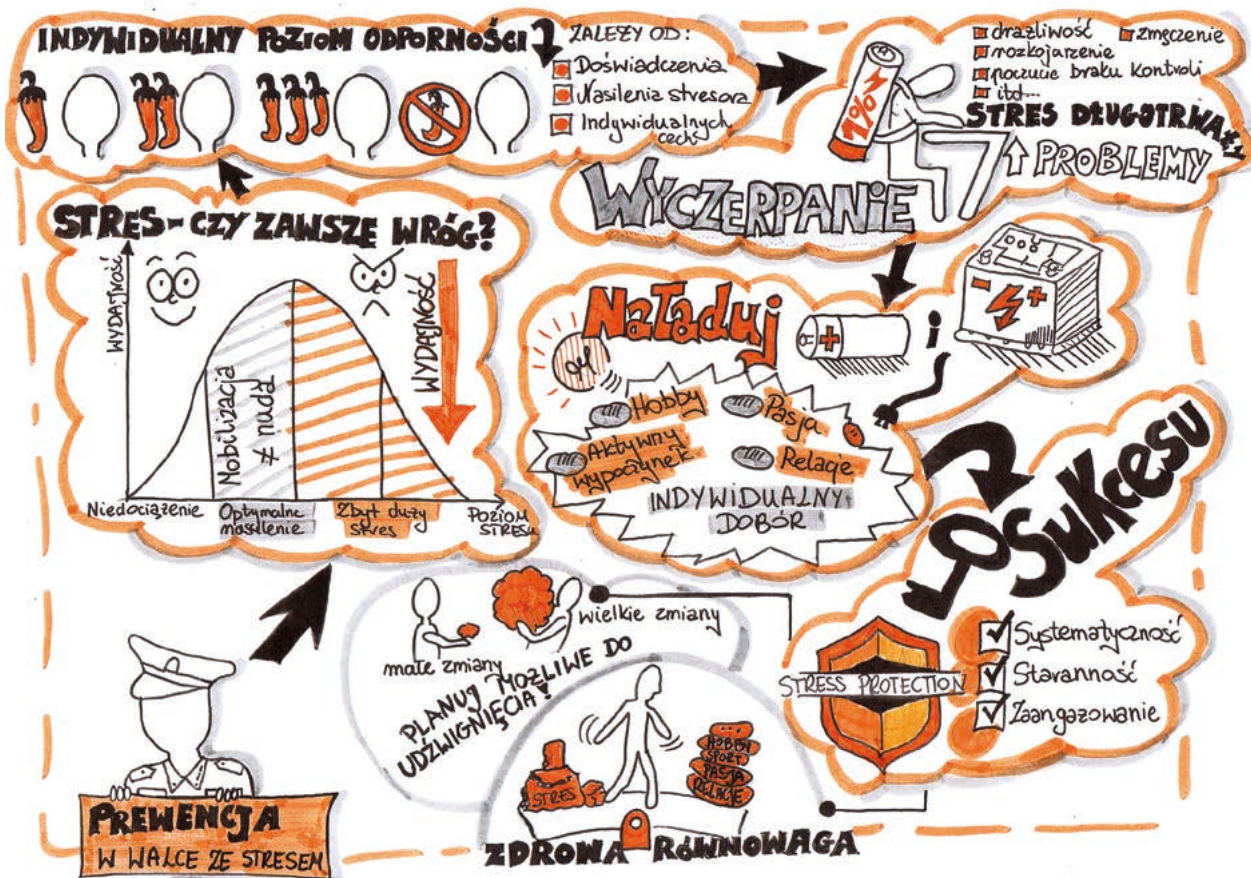 INDYWIDUALNY POZIOM ODPORNOŚCI
ZALEŻY OD:
Doświadczenia
Nasilenia stresora
Indywidualnych
cech
1%
drażliwość
zmęczenie
rozkojarzenie
poczucie braku kontroli
itd...
STRES DŁUGOTRWAŁY
↑ PROBLEMY
WYCZERPANIE
STRES - CZY ZAWSZE WRÓG?
WYDAJNOŚĆ
Mobilizacja
≠ nuda
WYDAJNOŚĆ
Niedociążenie
Optymalne
nasilenie
Zbyt duży
stres
POZIOM
STRESU
Naładuj
- +
+
Hobby
Pasja
Aktywny
wypoczynek
Relacje
INDYWIDUALNY
DOBÓR
Sukcesu
STRESS PROTECTION
Systematyczność
Staranność
Zaangażowanie
małe zmiany
wielkie zmiany
PLANUJ MOŻLIWE DO
UDŹWIGNIĘCIA!
STRES
HOBBY
SPORT
PASJA
RELACJE
ZDROWA RÓWNOWAGA
PREWENCJA
W WALCE ZE STRESEM